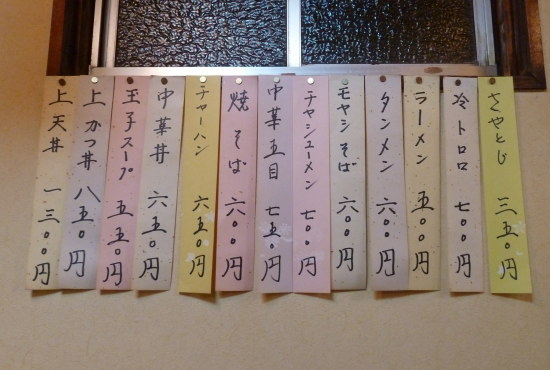 さやとじ 三五〇円
冷トロロ 七〇〇円
ラーメン 五〇〇円
タンメン 六〇〇円
モヤシそば 六〇〇円
チャシューメン 七〇〇円
中華五目 七五〇円
焼そば 六〇〇円
チャーハン 六五〇円
中華丼 六五〇円
玉子スープ 五五〇円
上かつ丼 八五〇円
上天丼 一三〇〇円